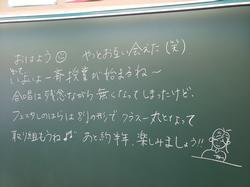 おはよう☺ やっとお互い会えた(笑)
いよいよ一斉授業が始まるね～
合唱は残念ながら無くなってしまったけど、
フェスタレのはらは別の形でクラス一丸となって
取り組もうね♪♪ あと約半年、楽しみましょう!!